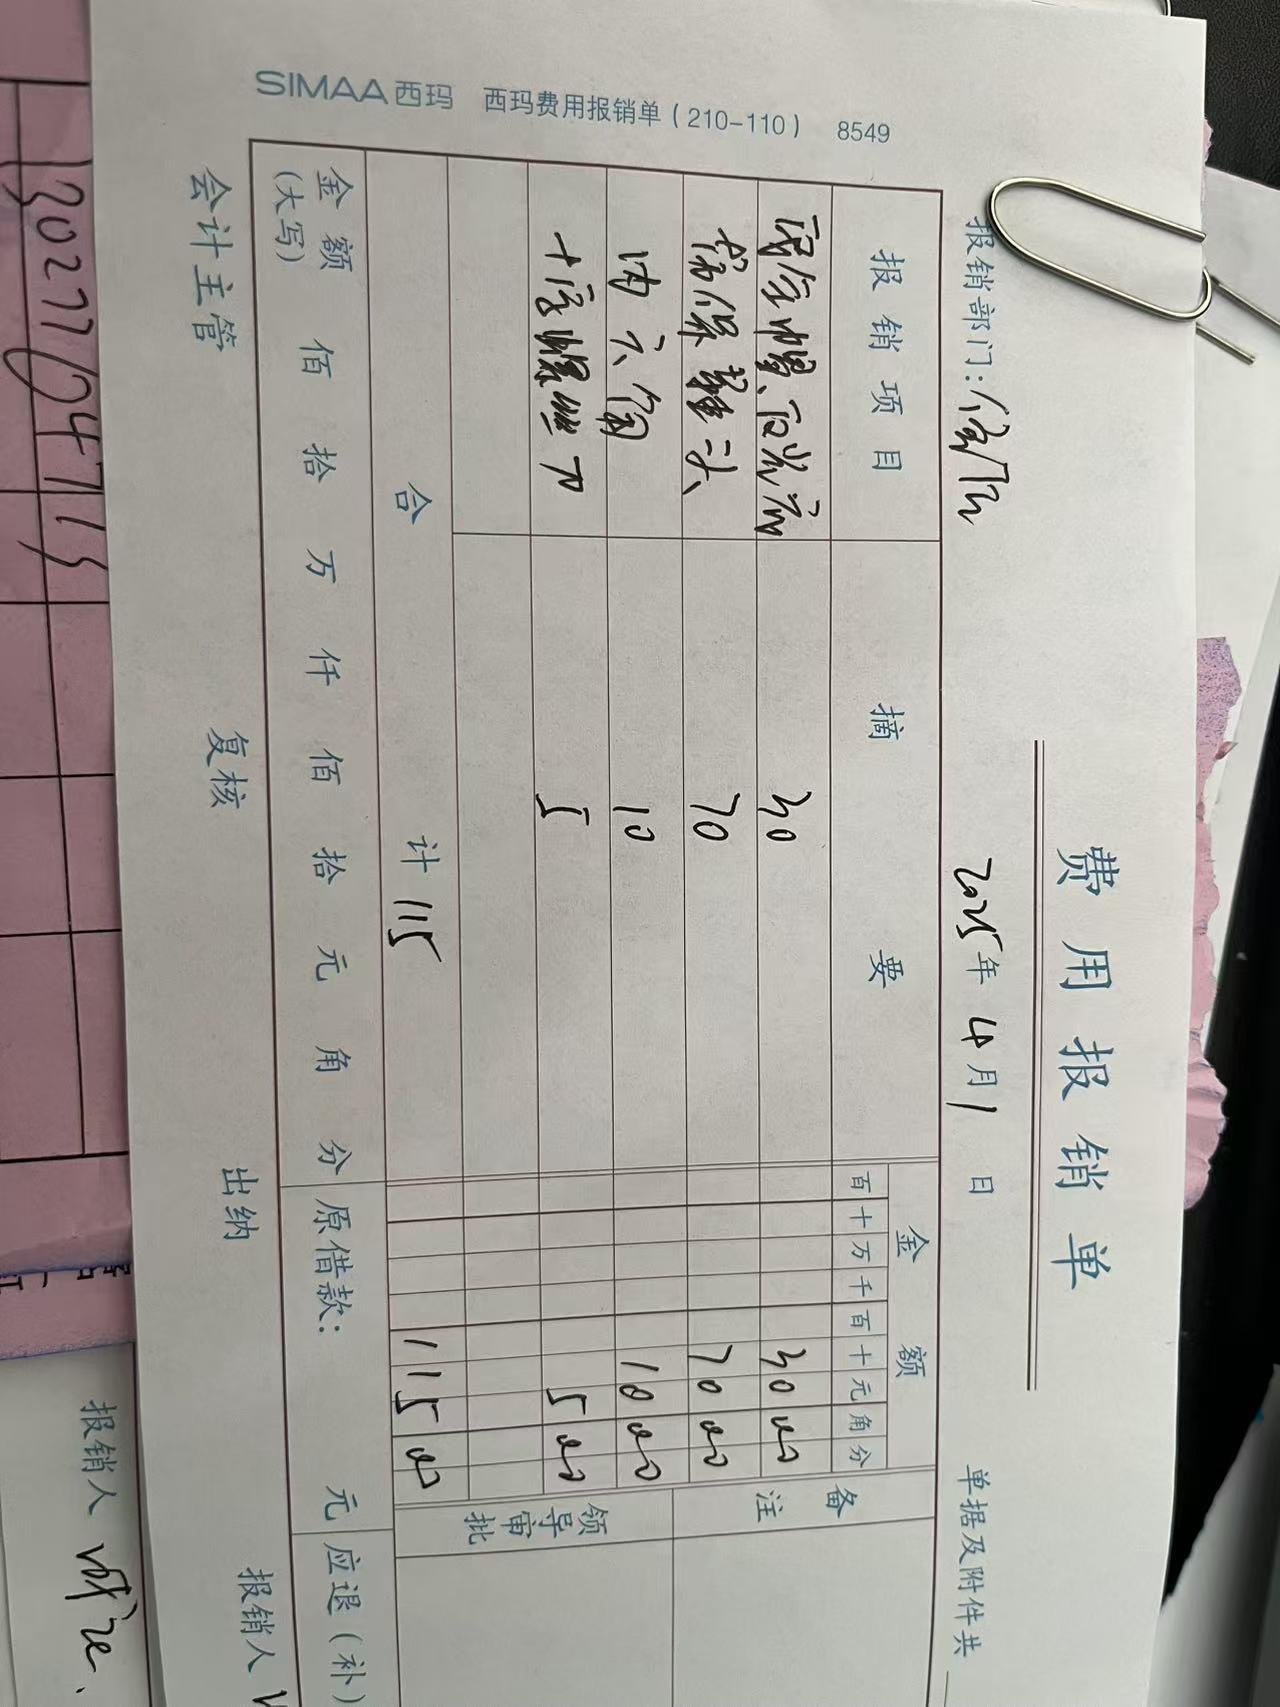 费用报销单
报销部门: 2025年 4月1日 单据及附件共
报销项目 摘要 金额 备注
百十万千百十元角分
30 30 00
70 70 00
内六角 10 10 00
十字螺丝刀 5 5 00
领导审批
合计 115 115 00
金额(大写) 佰拾万仟佰拾元角分 原借款: 元 应退(补)
会计主管 复核 出纳 报销人
SIMAA西玛 西玛费用报销单(210-110) 8549
报销人